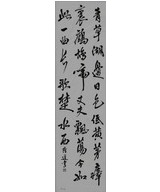 青草湖邊日色低黃茅瘴
裏鷓鴣啼丈夫飄蕩今如
此一曲長歌楚水西